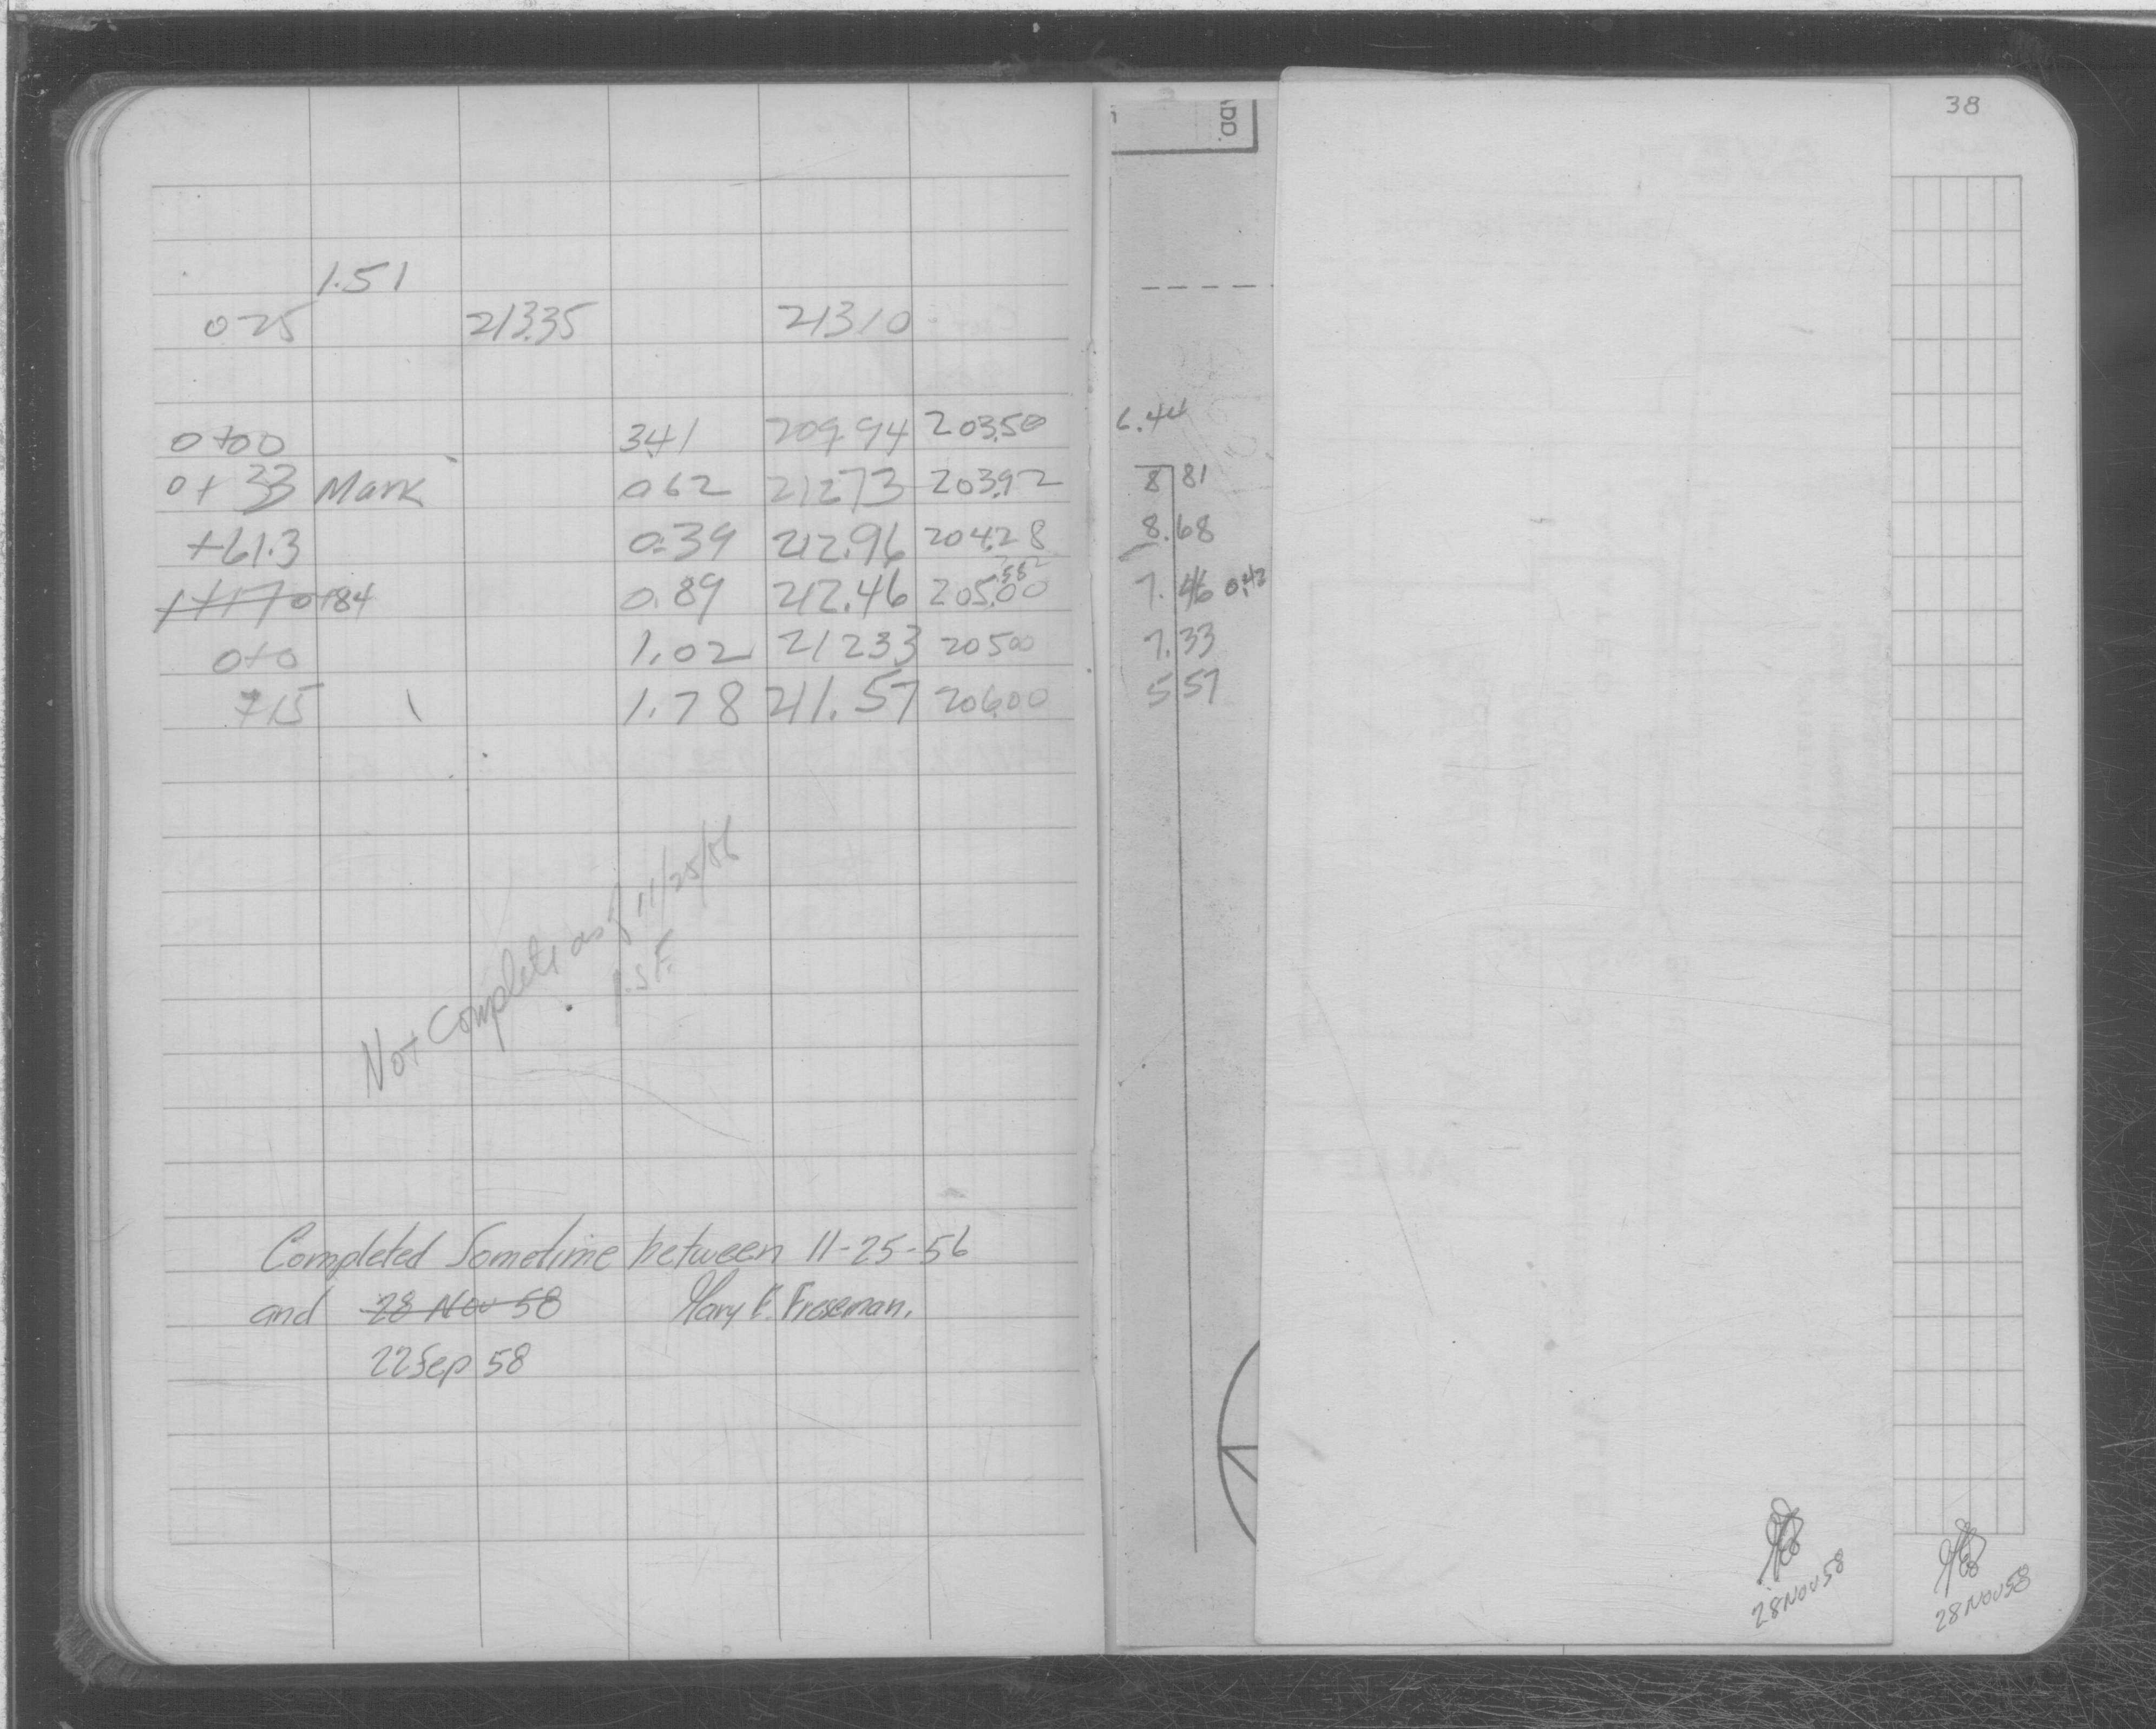 38
ADD.
1.51
025 213.35 21310
0+00 3.41 209.94 203.50 6.44
0+33 Mark 062 21273 203.92 8 81
+61.3 0.39 212.96 204.28 8.68
1+17 0+84 0.89 212.46 205.00 7.46 0.42
0+0 1.02 21233 20500 7.33
+15 1.78 211.57 206.00 5 57
Not Complete as of 11/25/56
Completed Sometime between 11-25-56
and 28 Nov 58 Mary E. Freseman.
22 Sep 58
28 Nov 58
28 Nov 58